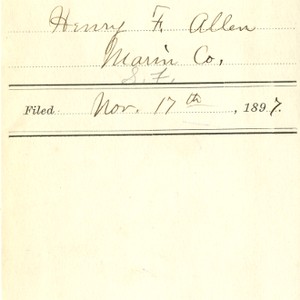 Henry F. Allen
Marin Co.
S.F.
Filed Nov. 17th, 1897.